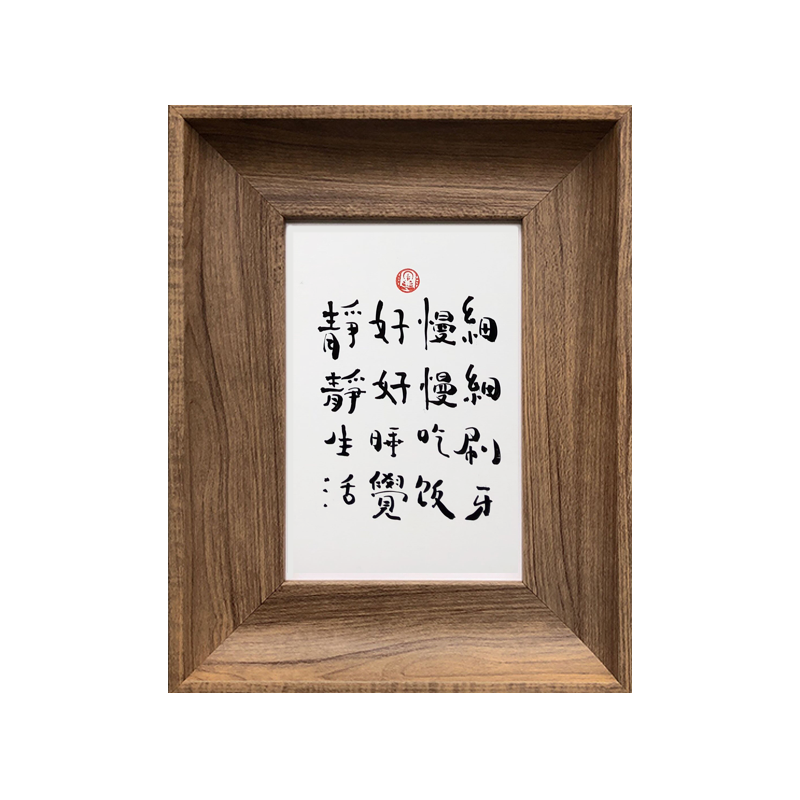 細細刷牙
慢慢吃饭
好好睡覺
靜靜生活